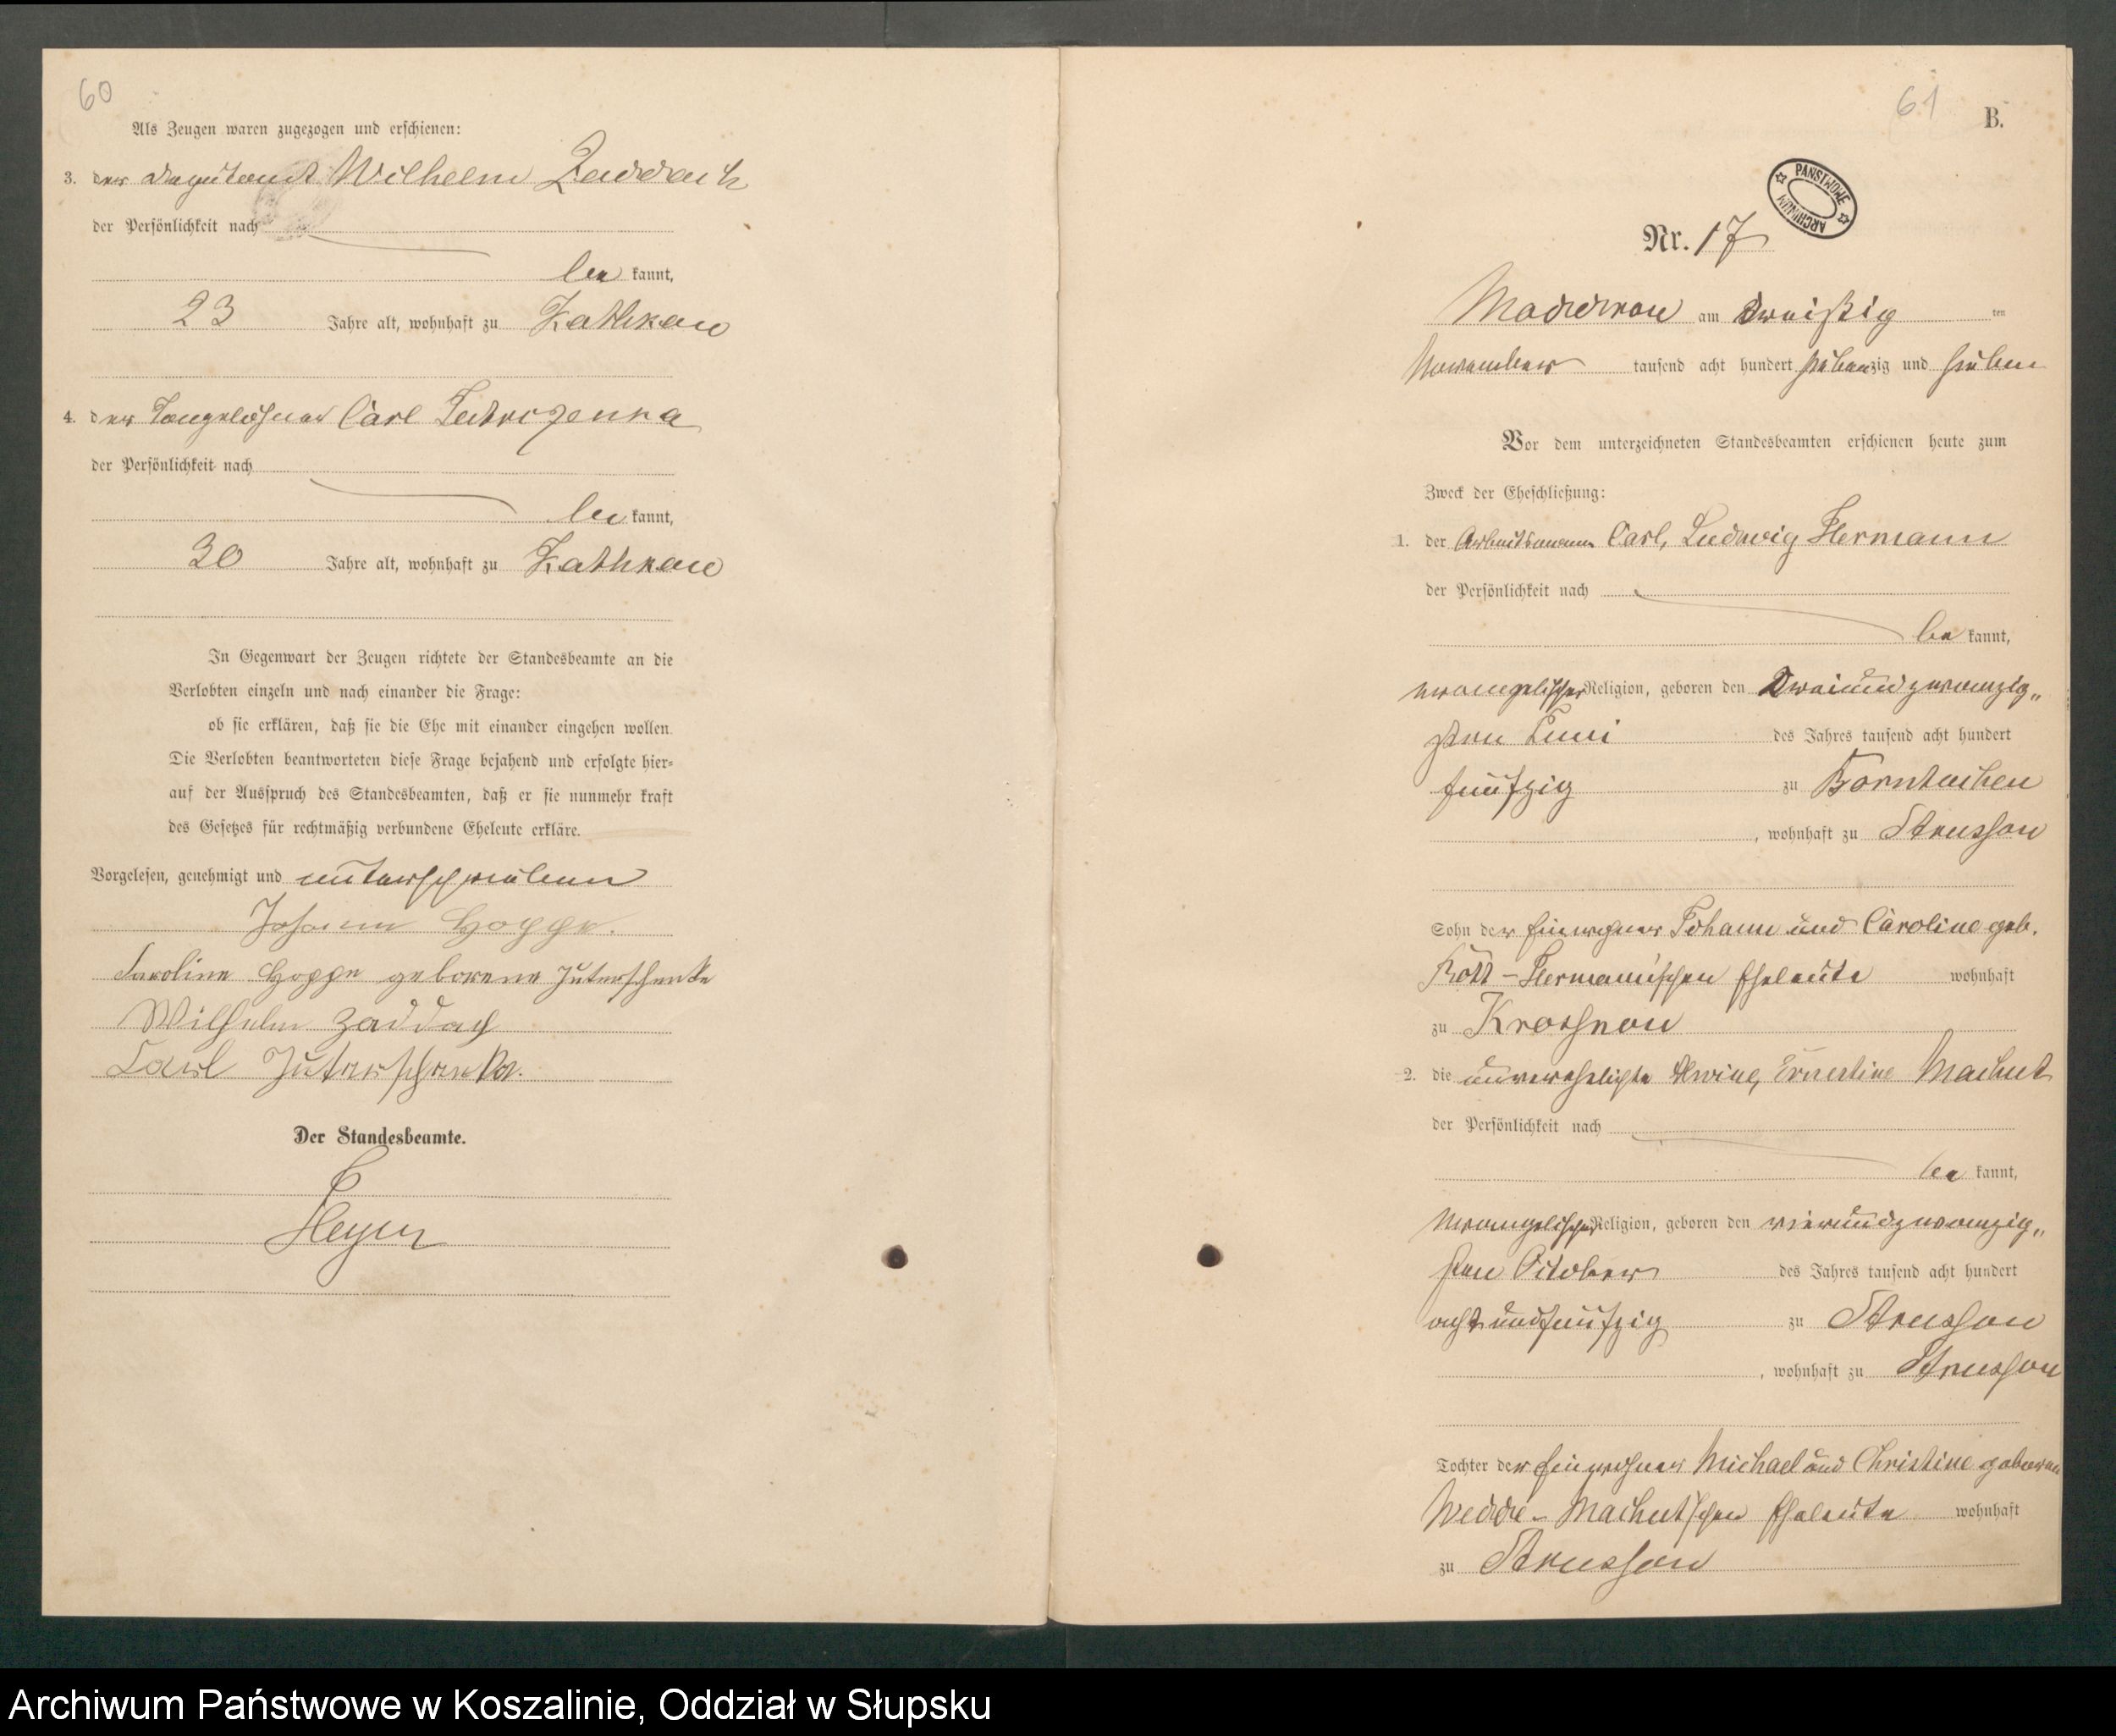 60
Als Zeugen waren zugezogen und erschienen:
3. der Wilhelm Zaddach
der Persönlichkeit nach
be kannt,
23 Jahre alt, wohnhaft zu Zathkow
4. der Tagelöhner Carl
der Persönlichkeit nach
be kannt,
30 Jahre alt, wohnhaft zu Zathkow
In Gegenwart der Zeugen richtete der Standesbeamte an die
Verlobten einzeln und nach einander die Frage:
ob sie erklären, daß sie die Ehe mit einander eingehen wollen.
Die Verlobten beantworteten diese Frage bejahend und erfolgte hier-
auf der Ausspruch des Standesbeamten, daß er sie nunmehr kraft
des Gesetzes für rechtmäßig verbundene Eheleute erkläre.
Vorgelesen, genehmigt und unterschrieben
Johann Hoppe.
Karoline Hoppe geborene Juterschenke
Wilhelm Zaddach
Carl Juterschenka.
Der Standesbeamte.
Heyer
61
B.
PAŃSTWOWE ARCHIWUM
Nr. 17
Madderow am dreißig ten
November tausend acht hundert siebenzig und sieben
Vor dem unterzeichneten Standesbeamten erschienen heute zum
Zweck der Eheschließung:
1. der Arbeitsmann Carl, Ludwig Hermann
der Persönlichkeit nach
be kannt,
evangelischer Religion, geboren den zweiundzwanzig„
sten Juni des Jahres tausend acht hundert
fünfzig zu Borntuchen
, wohnhaft zu Strussow
Sohn der Einwohner Johann und Caroline geb.
Hermannschen Eheleute wohnhaft
zu Krossnow
2. die unverehelichte Alwine, Ernestine Machut
der Persönlichkeit nach
be kannt,
evangelischer Religion, geboren den vierundzwanzig„
sten October des Jahres tausend acht hundert
achtundfünfzig zu Strussow
, wohnhaft zu Strussow
Tochter der Einwohner Michael und Christine geborene
Wedde - Machutschen Eheleute wohnhaft
zu Strussow
Archiwum Państwowe w Koszalinie, Oddział w Słupsku